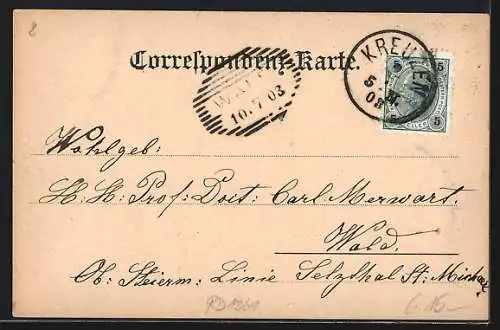 8
Correspondenz-Karte.
KREUZEN
5
03
WALD
10.7.03
5 5
Wohlgeb:
H. H. Prof: Doct: Carl Merwart.
Wald.
Ob: Steierm: Linie Selzthal St: Michael
RD1361
6 15-